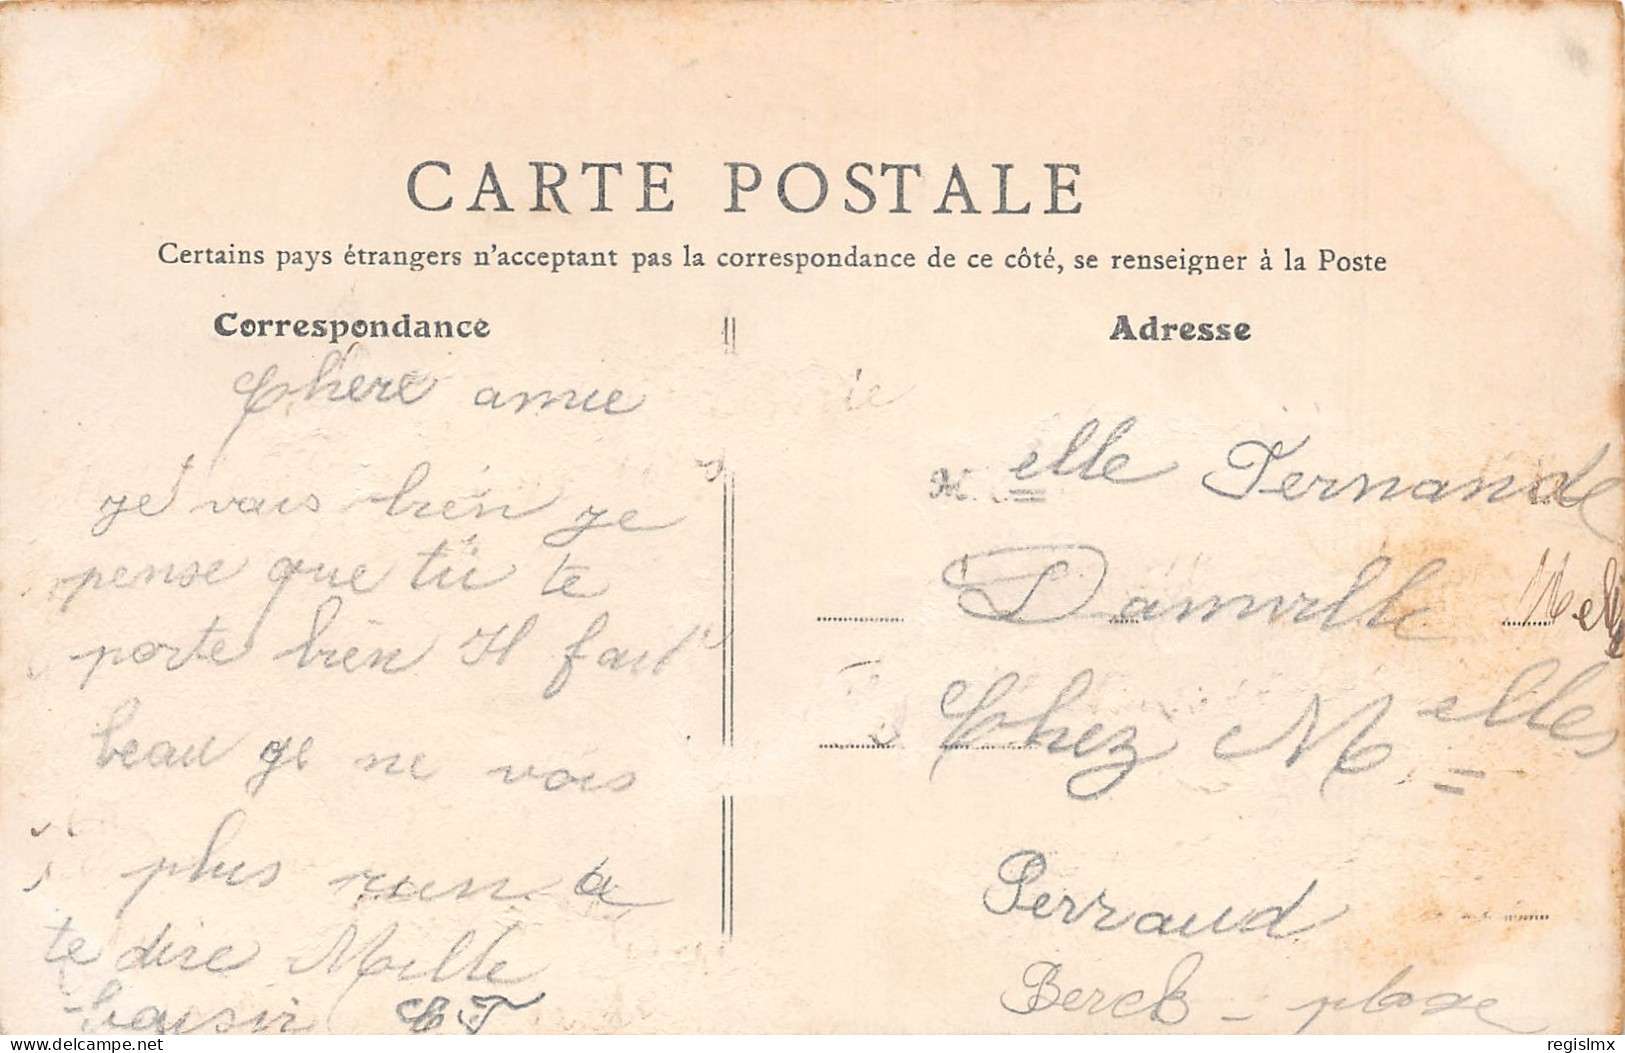 CARTE POSTALE
Certains pays étrangers n'acceptant pas la correspondance de ce côté, se renseigner à la Poste
Correspondance
Chere amie
je vais bien je
pense que tu te
porte bien Il fait
beau je ne vois
plus rien a
te dire Mille
baisir CT
Adresse
Melle Fernande
Danville
Chez M.elles
Perraud
Berck - plage
delcampe.net
regislmx